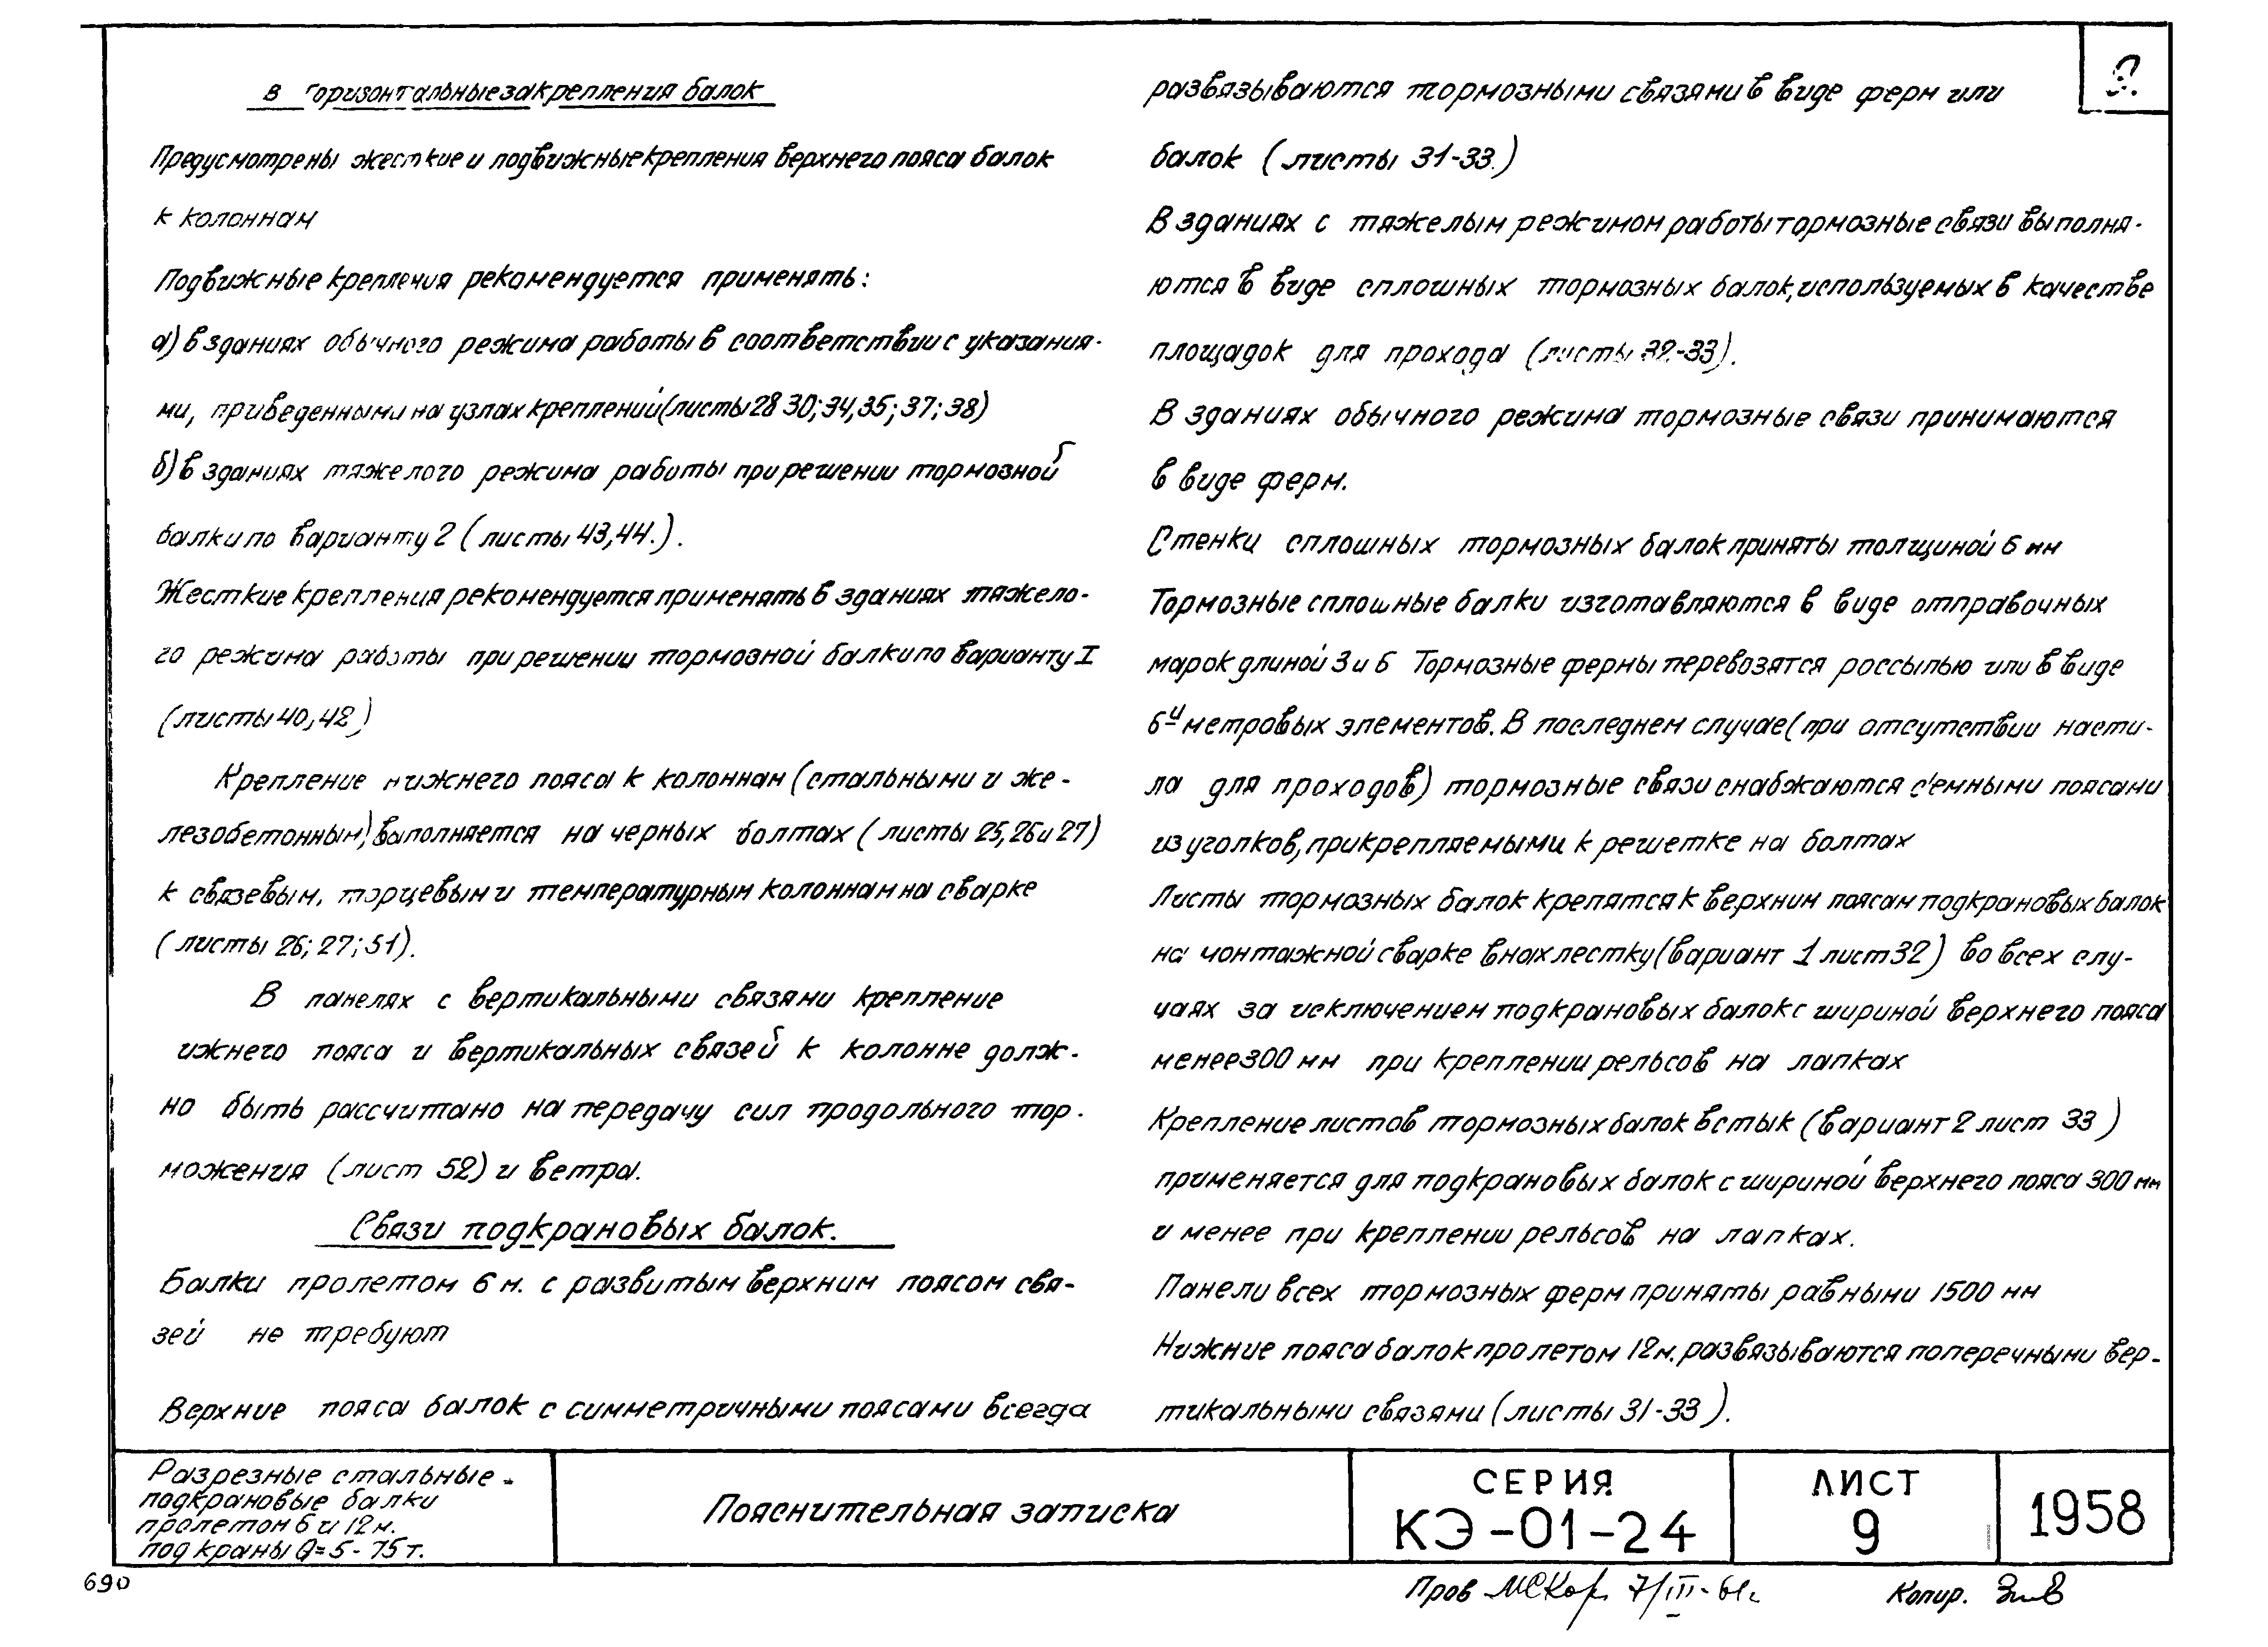 в горизонтальные закрепления балок
Предусмотрены жесткие и подвижные крепления верхнего пояса балок
к колоннам
Подвижные крепления рекомендуется применять:
а) в зданиях обычного режима работы в соответствии с указания-
ми, приведенными на узлах креплений (листы 28 30; 34, 35; 37; 38)
б) в зданиях тяжелого режима работы при решении тормозной
балки по варианту 2 (листы 43, 44.).
Жесткие крепления рекомендуется применять в зданиях тяжело-
го режима работы при решении тормозной балки по варианту I
(листы 40, 42)
Крепление нижнего пояса к колоннам (стальными и же-
лезобетонным) выполняется на черных болтах (листы 25, 26 и 27)
к связевым, торцевым и температурным колоннам на сварке
(листы 26; 27; 51).
В панелях с вертикальными связями крепление
ижнего пояса и вертикальных связей к колонне долж-
но быть рассчитано на передачу сил продольного тор-
можения (лист 52) и ветра.
Связи подкрановых балок.
Балки пролетом 6 м. с развитым верхним поясом свя-
зей не требуют
Верхние пояса балок с симметричными поясами всегда
развязываются тормозными связями в виде ферм или
балок (листы 31-33.)
В зданиях с тяжелым режимом работы тормозные связи выполня-
ются в виде сплошных тормозных балок, используемых в качестве
площадок для прохода (листы 32-33).
В зданиях обычного режима тормозные связи принимаются
в виде ферм.
Стенки сплошных тормозных балок приняты толщиной 6 мм
Тормозные сплошные балки изготавляются в виде отправочных
марок длиной 3 и 6 Тормозные фермы перевозятся россыпью или в виде
6и метровых элементов. В последнем случае (при отсутствии насти-
ла для проходов) тормозные связи снабжаются с'емными поясами
из уголков, прикрепляемыми к решетке на болтах
Листы тормозных балок крепятся к верхним поясам подкрановых балок
на монтажной сварке внахлестку (вариант 1 лист 32) во всех слу-
чаях за исключением подкрановых балок с шириной верхнего пояса
менее 300 мм при креплении рельсов на лапках
Крепление листов тормозных балок встык (вариант 2 лист 33)
применяется для подкрановых балок с шириной верхнего пояса 300 мм
и менее при креплении рельсов на лапках.
Панели всех тормозных ферм приняты равными 1500 мм
Нижние пояса балок пролетом 12 м. развязываются поперечными вер-
тикальными связями (листы 31-33).
Разрезные стальные
подкрановые балки
пролетом 6 и 12 м.
под краны Q=5-75 т.
Пояснительная записка
СЕРИЯ
КЭ-01-24
ЛИСТ
9
1958
690
Пров 7/III-61г
Копир.